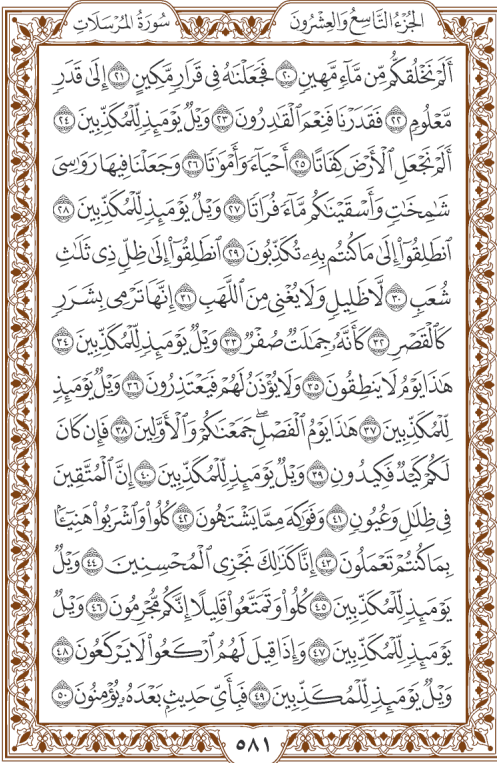 سُورَةُ المُرْسَلَات
الجُزْءُ التَّاسِعُ وَالعِشْرُونَ
أَلَمْ نَخْلُقكُّم مِّن مَّآءٍ مَّهِينٍ ٢٠ فَجَعَلْنَٰهُ فِى قَرَارٍ مَّكِينٍ ٢١ إِلَىٰ قَدَرٍ
مَّعْلُومٍ ٢٢ فَقَدَرْنَا فَنِعْمَ ٱلْقَٰدِرُونَ ٢٣ وَيْلٌ يَوْمَئِذٍ لِّلْمُكَذِّبِينَ ٢٤
أَلَمْ نَجْعَلِ ٱلْأَرْضَ كِفَاتًا ٢٥ أَحْيَآءً وَأَمْوَٰتًا ٢٦ وَجَعَلْنَا فِيهَا رَوَٰسِىَ
شَٰمِخَٰتٍ وَأَسْقَيْنَٰكُم مَّآءً فُرَاتًا ٢٧ وَيْلٌ يَوْمَئِذٍ لِّلْمُكَذِّبِينَ ٢٨
ٱنطَلِقُوٓا۟ إِلَىٰ مَا كُنتُم بِهِۦ تُكَذِّبُونَ ٢٩ ٱنطَلِقُوٓا۟ إِلَىٰ ظِلٍّ ذِى ثَلَٰثِ
شُعَبٍ ٣٠ لَّا ظَلِيلٍ وَلَا يُغْنِى مِنَ ٱللَّهَبِ ٣١ إِنَّهَا تَرْمِى بِشَرَرٍ
كَٱلْقَصْرِ ٣٢ كَأَنَّهُۥ جِمَٰلَتٌ صُفْرٌ ٣٣ وَيْلٌ يَوْمَئِذٍ لِّلْمُكَذِّبِينَ ٣٤
هَٰذَا يَوْمُ لَا يَنطِقُونَ ٣٥ وَلَا يُؤْذَنُ لَهُمْ فَيَعْتَذِرُونَ ٣٦ وَيْلٌ يَوْمَئِذٍ
لِّلْمُكَذِّبِينَ ٣٧ هَٰذَا يَوْمُ ٱلْفَصْلِ ۖ جَمَعْنَٰكُمْ وَٱلْأَوَّلِينَ ٣٨ فَإِن كَانَ
لَكُمْ كَيْدٌ فَكِيدُونِ ٣٩ وَيْلٌ يَوْمَئِذٍ لِّلْمُكَذِّبِينَ ٤٠ إِنَّ ٱلْمُتَّقِينَ
فِى ظِلَٰلٍ وَعُيُونٍ ٤١ وَفَوَٰكِهَ مِمَّا يَشْتَهُونَ ٤٢ كُلُوا۟ وَٱشْرَبُوا۟ هَنِيٓـًٔۢا
بِمَا كُنتُمْ تَعْمَلُونَ ٤٣ إِنَّا كَذَٰلِكَ نَجْزِى ٱلْمُحْسِنِينَ ٤٤ وَيْلٌ
يَوْمَئِذٍ لِّلْمُكَذِّبِينَ ٤٥ كُلُوا۟ وَتَمَتَّعُوا۟ قَلِيلًا إِنَّكُم مُّجْرِمُونَ ٤٦ وَيْلٌ
يَوْمَئِذٍ لِّلْمُكَذِّبِينَ ٤٧ وَإِذَا قِيلَ لَهُمُ ٱرْكَعُوا۟ لَا يَرْكَعُونَ ٤٨
وَيْلٌ يَوْمَئِذٍ لِّلْمُكَذِّبِينَ ٤٩ فَبِأَىِّ حَدِيثٍۭ بَعْدَهُۥ يُؤْمِنُونَ ٥٠
٥٨١